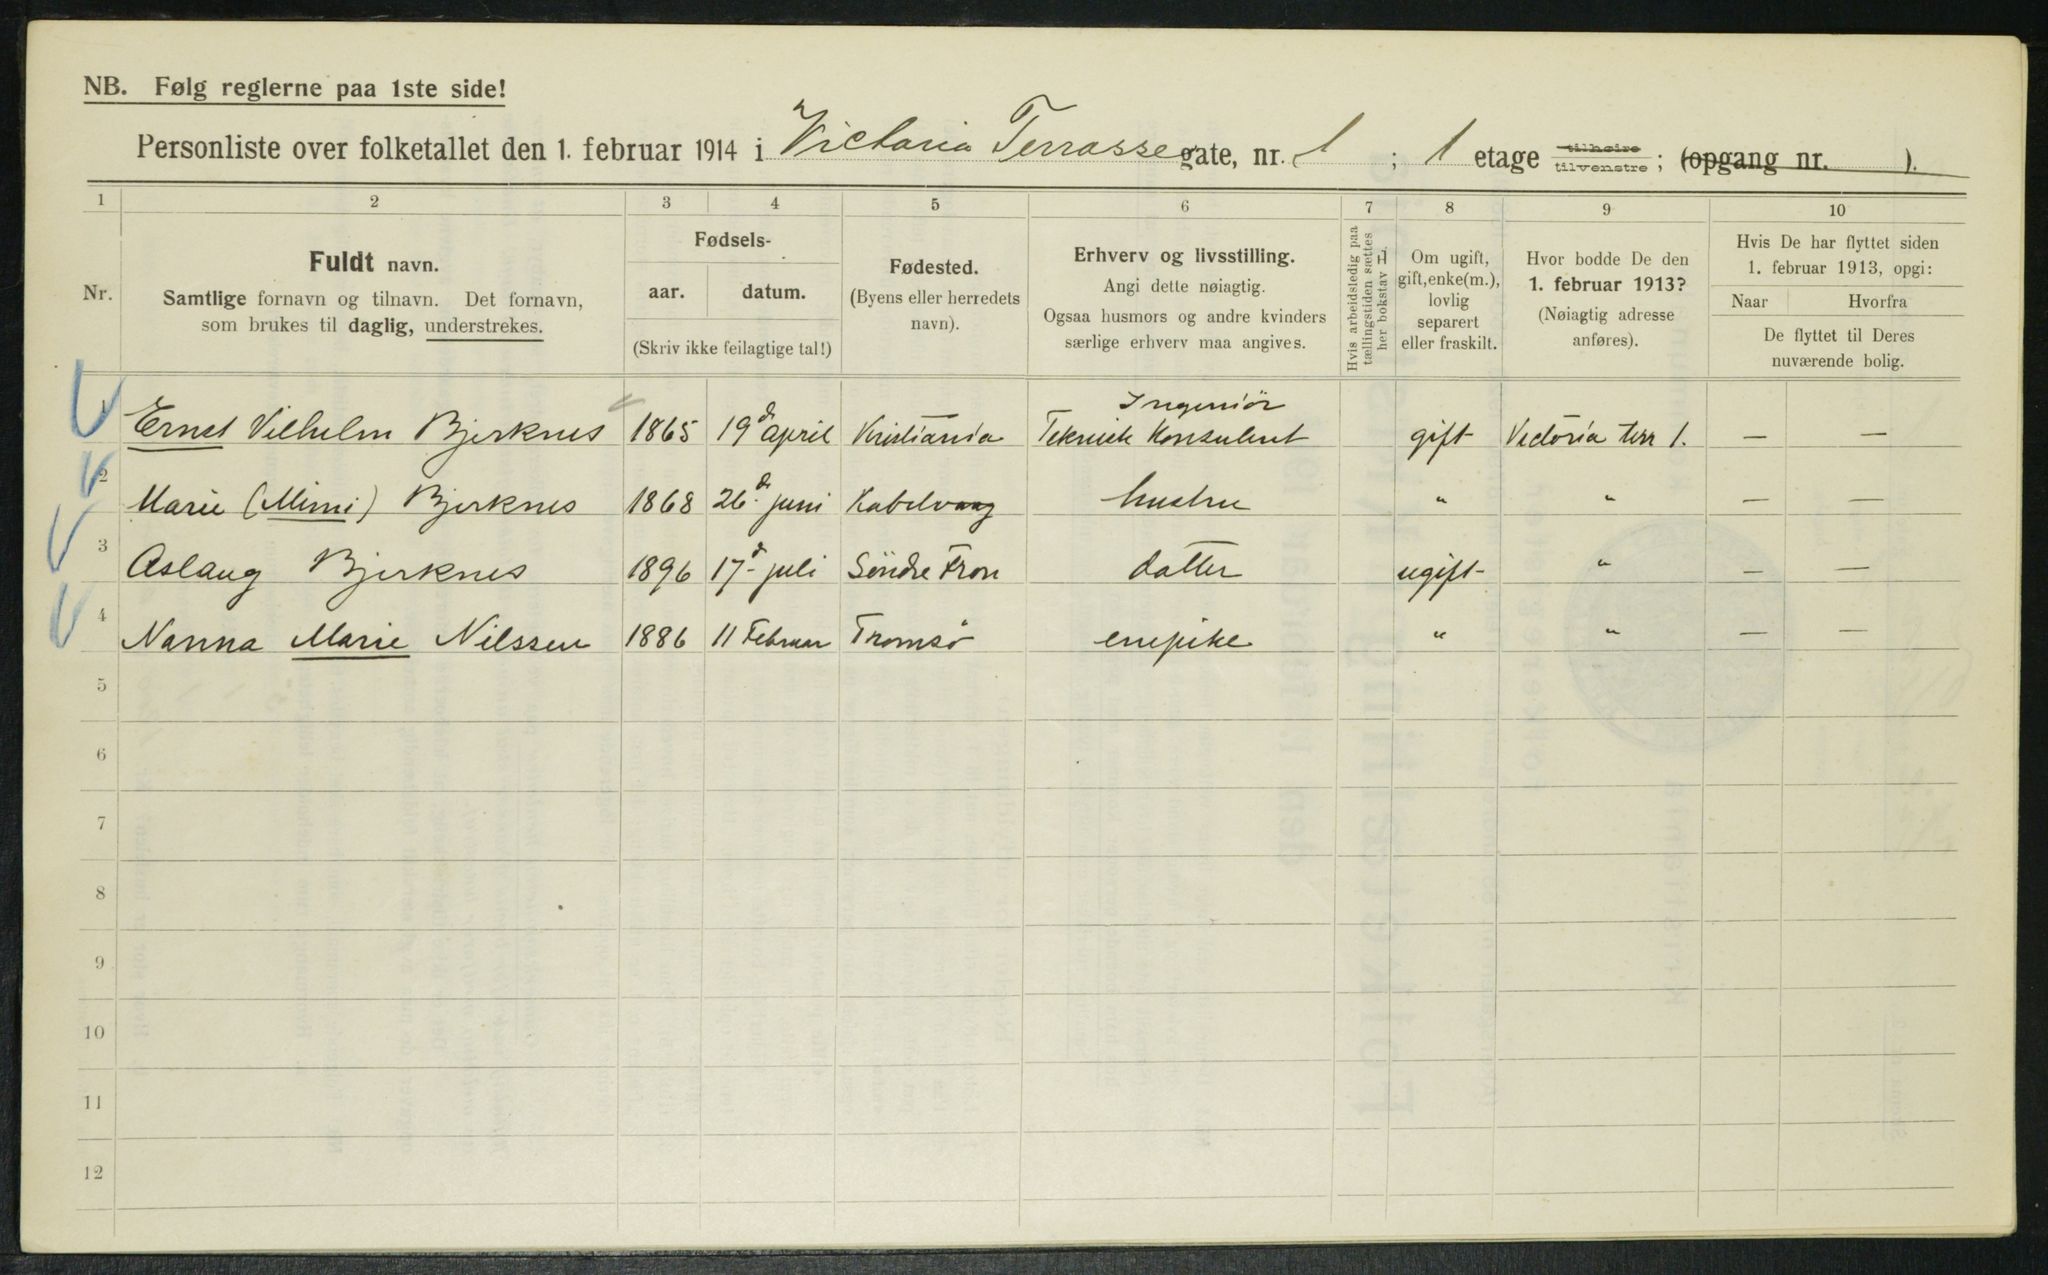 NB. Følg reglerne paa 1ste side!
Personliste over folketallet den 1. februar 1914 i Victoria Terrasse gate, nr. 1 ; 1 etage tilhøire tilvenstre ; (opgang nr. ).
1 2 3 4 5 6 7 8 9 10
Nr.
Fuldt navn.
Samtlige fornavn og tilnavn. Det fornavn,
som brukes til daglig, understrekes.
Fødsels-
aar. datum.
(Skriv ikke feilagtige tal!)
Fødested.
(Byens eller herredets
navn).
Erhverv og livsstilling.
Angi dette nøiagtig.
Ogsaa husmors og andre kvinders
særlige erhverv maa angives.
Hvis arbeidsledig paa
tællingstiden sættes
her bokstav L.
Om ugift,
gift, enke(m.),
lovlig
separert
eller fraskilt.
Hvor bodde De den
1. februar 1913?
(Nøiagtig adresse
anføres).
Hvis De har flyttet siden
1. februar 1913, opgi:
Naar Hvorfra
De flyttet til Deres
nuværende bolig.
Ingeniör
1 Ernst Vilhelm Bjerknes 1865 19d april Kristiania Teknisk Konsulent gift Victoria terr 1. — —
2 Marie (Mimi) Bjerknes 1868 26d juni Kabelvaag hustru " " — —
3 Aslaug Bjerknes 1896 17d juli Söndre Fron datter ugift " — —
4 Nanna Marie Nilssen 1886 11 Februar Tromsö enepike " " — —
5
6
7
8
9
10
11
12